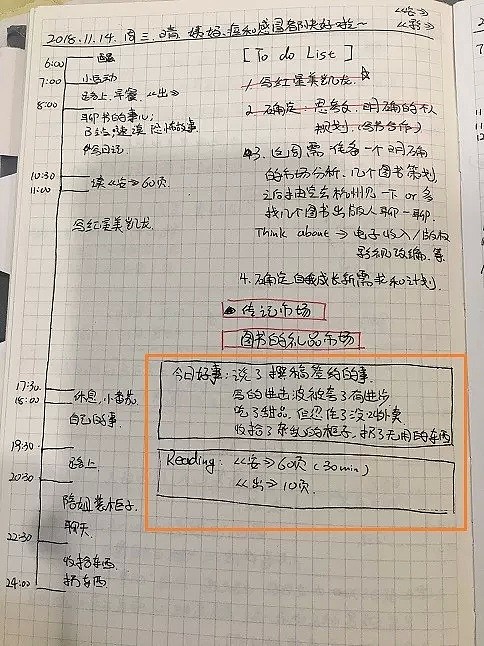 2018.11.14. 周三 晴 姨妈、痘和感冒都快好啦~
《安》
《彩》
6:00 醒
7:00 小运动
8:00 路上、早餐、《出》
聊书的事儿;
今日记
10:30
11:00 读《安》60页
写红星美凯龙
17:30
18:00 休息,小番茄
自己的事
19:30
路上
20:30
陪姐装柜子
聊天
22:30
收拾东西
扔东西
24:00
[To do List]
1. 写红星美凯龙.
2. 确定:思考、明确的个人
规划.(含书合作)
3. 这周需 准备一个明确
的市场分析、几个图书策划,
之后去杭州见一下 or 多
找几个图书出版人聊一聊.
Think about → 电子收入/版权
影视改编.等
4. 确定自我成长新需求和计划.
传记市场
图书的礼品市场
今日好事:说了撰稿签约的事.
写的被夸了有进步
吃了甜品,但忍住了没叫外卖
收拾了杂乱的柜子,扔了无用的东西
Reading: 《安》60页(30min)
《出》10页.